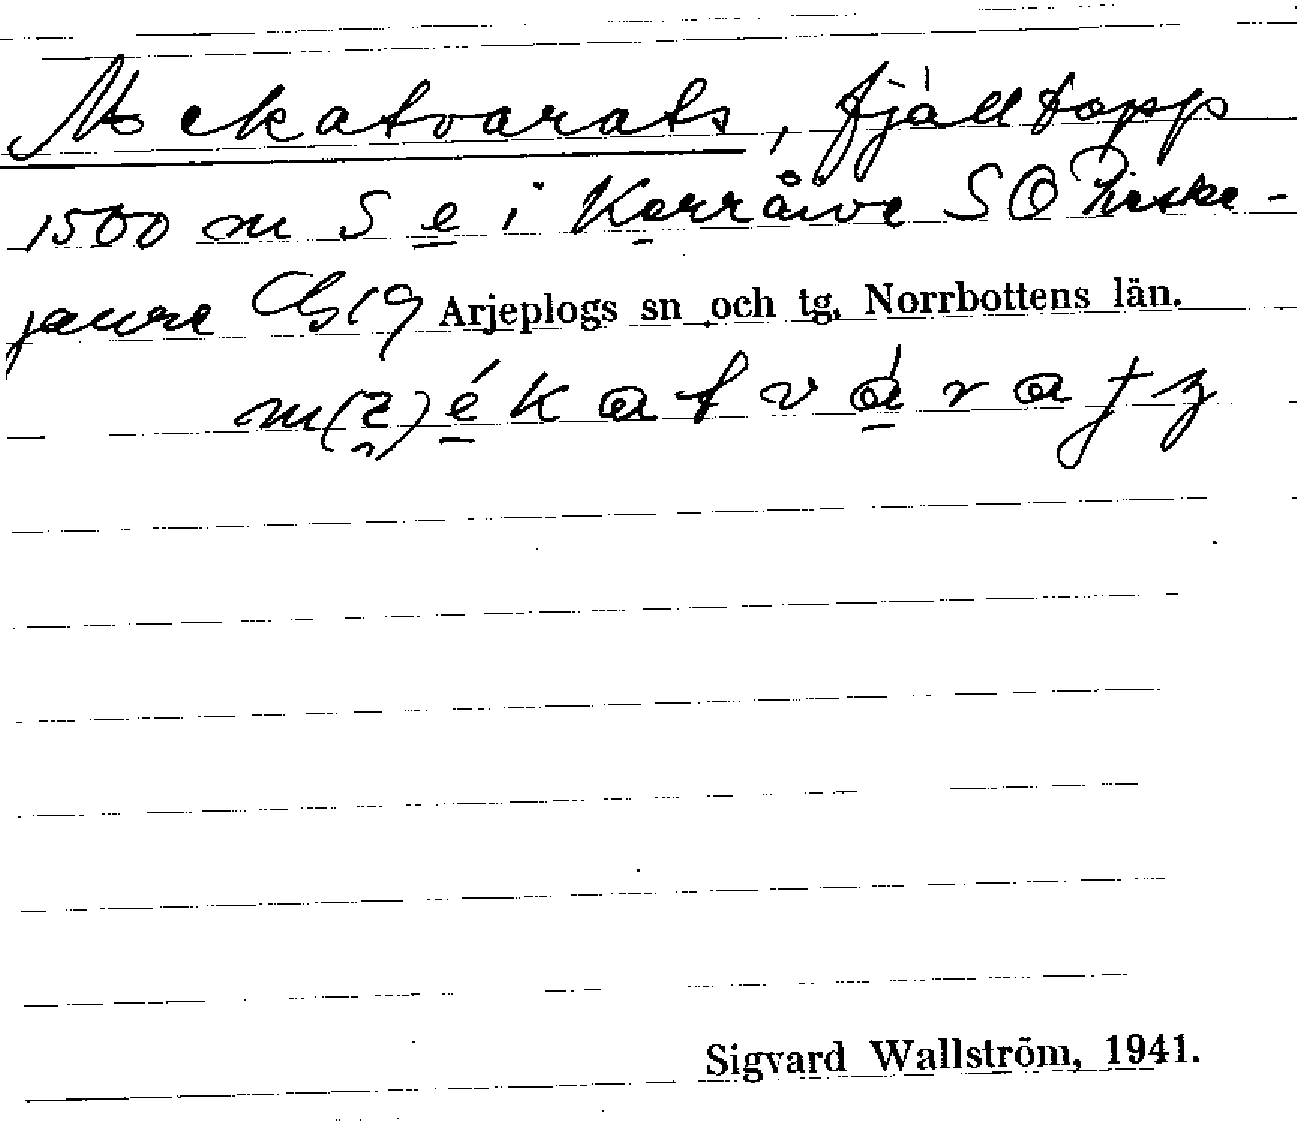 Mekatvarats, fjälltopp
1500 m S e i Karråive SO Pieske-
jaure Cb19 Arjeplogs sn och tg. Norrbottens län.
Sigvard Wallström, 1941.